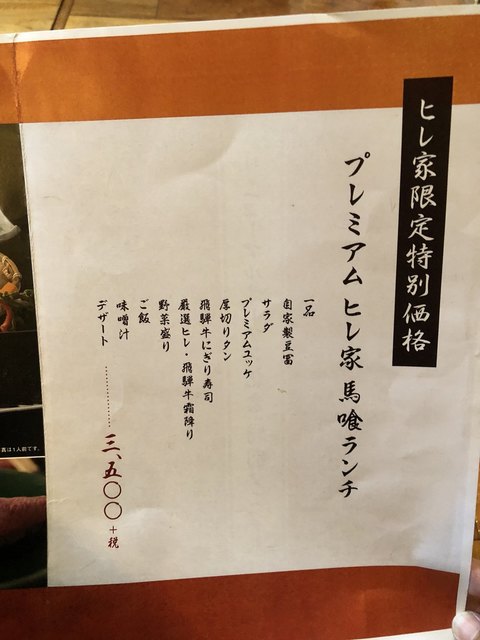 ヒレ家限定特別価格
プレミアム ヒレ家 馬喰ランチ
一品
自家製豆冨
サラダ
プレミアムユッケ
厚切りタン
飛騨牛にぎり寿司
厳選ヒレ・飛騨牛霜降り
野菜盛り
ご飯
味噌汁
デザート ………… 三、五〇〇+税
真は1人前です。